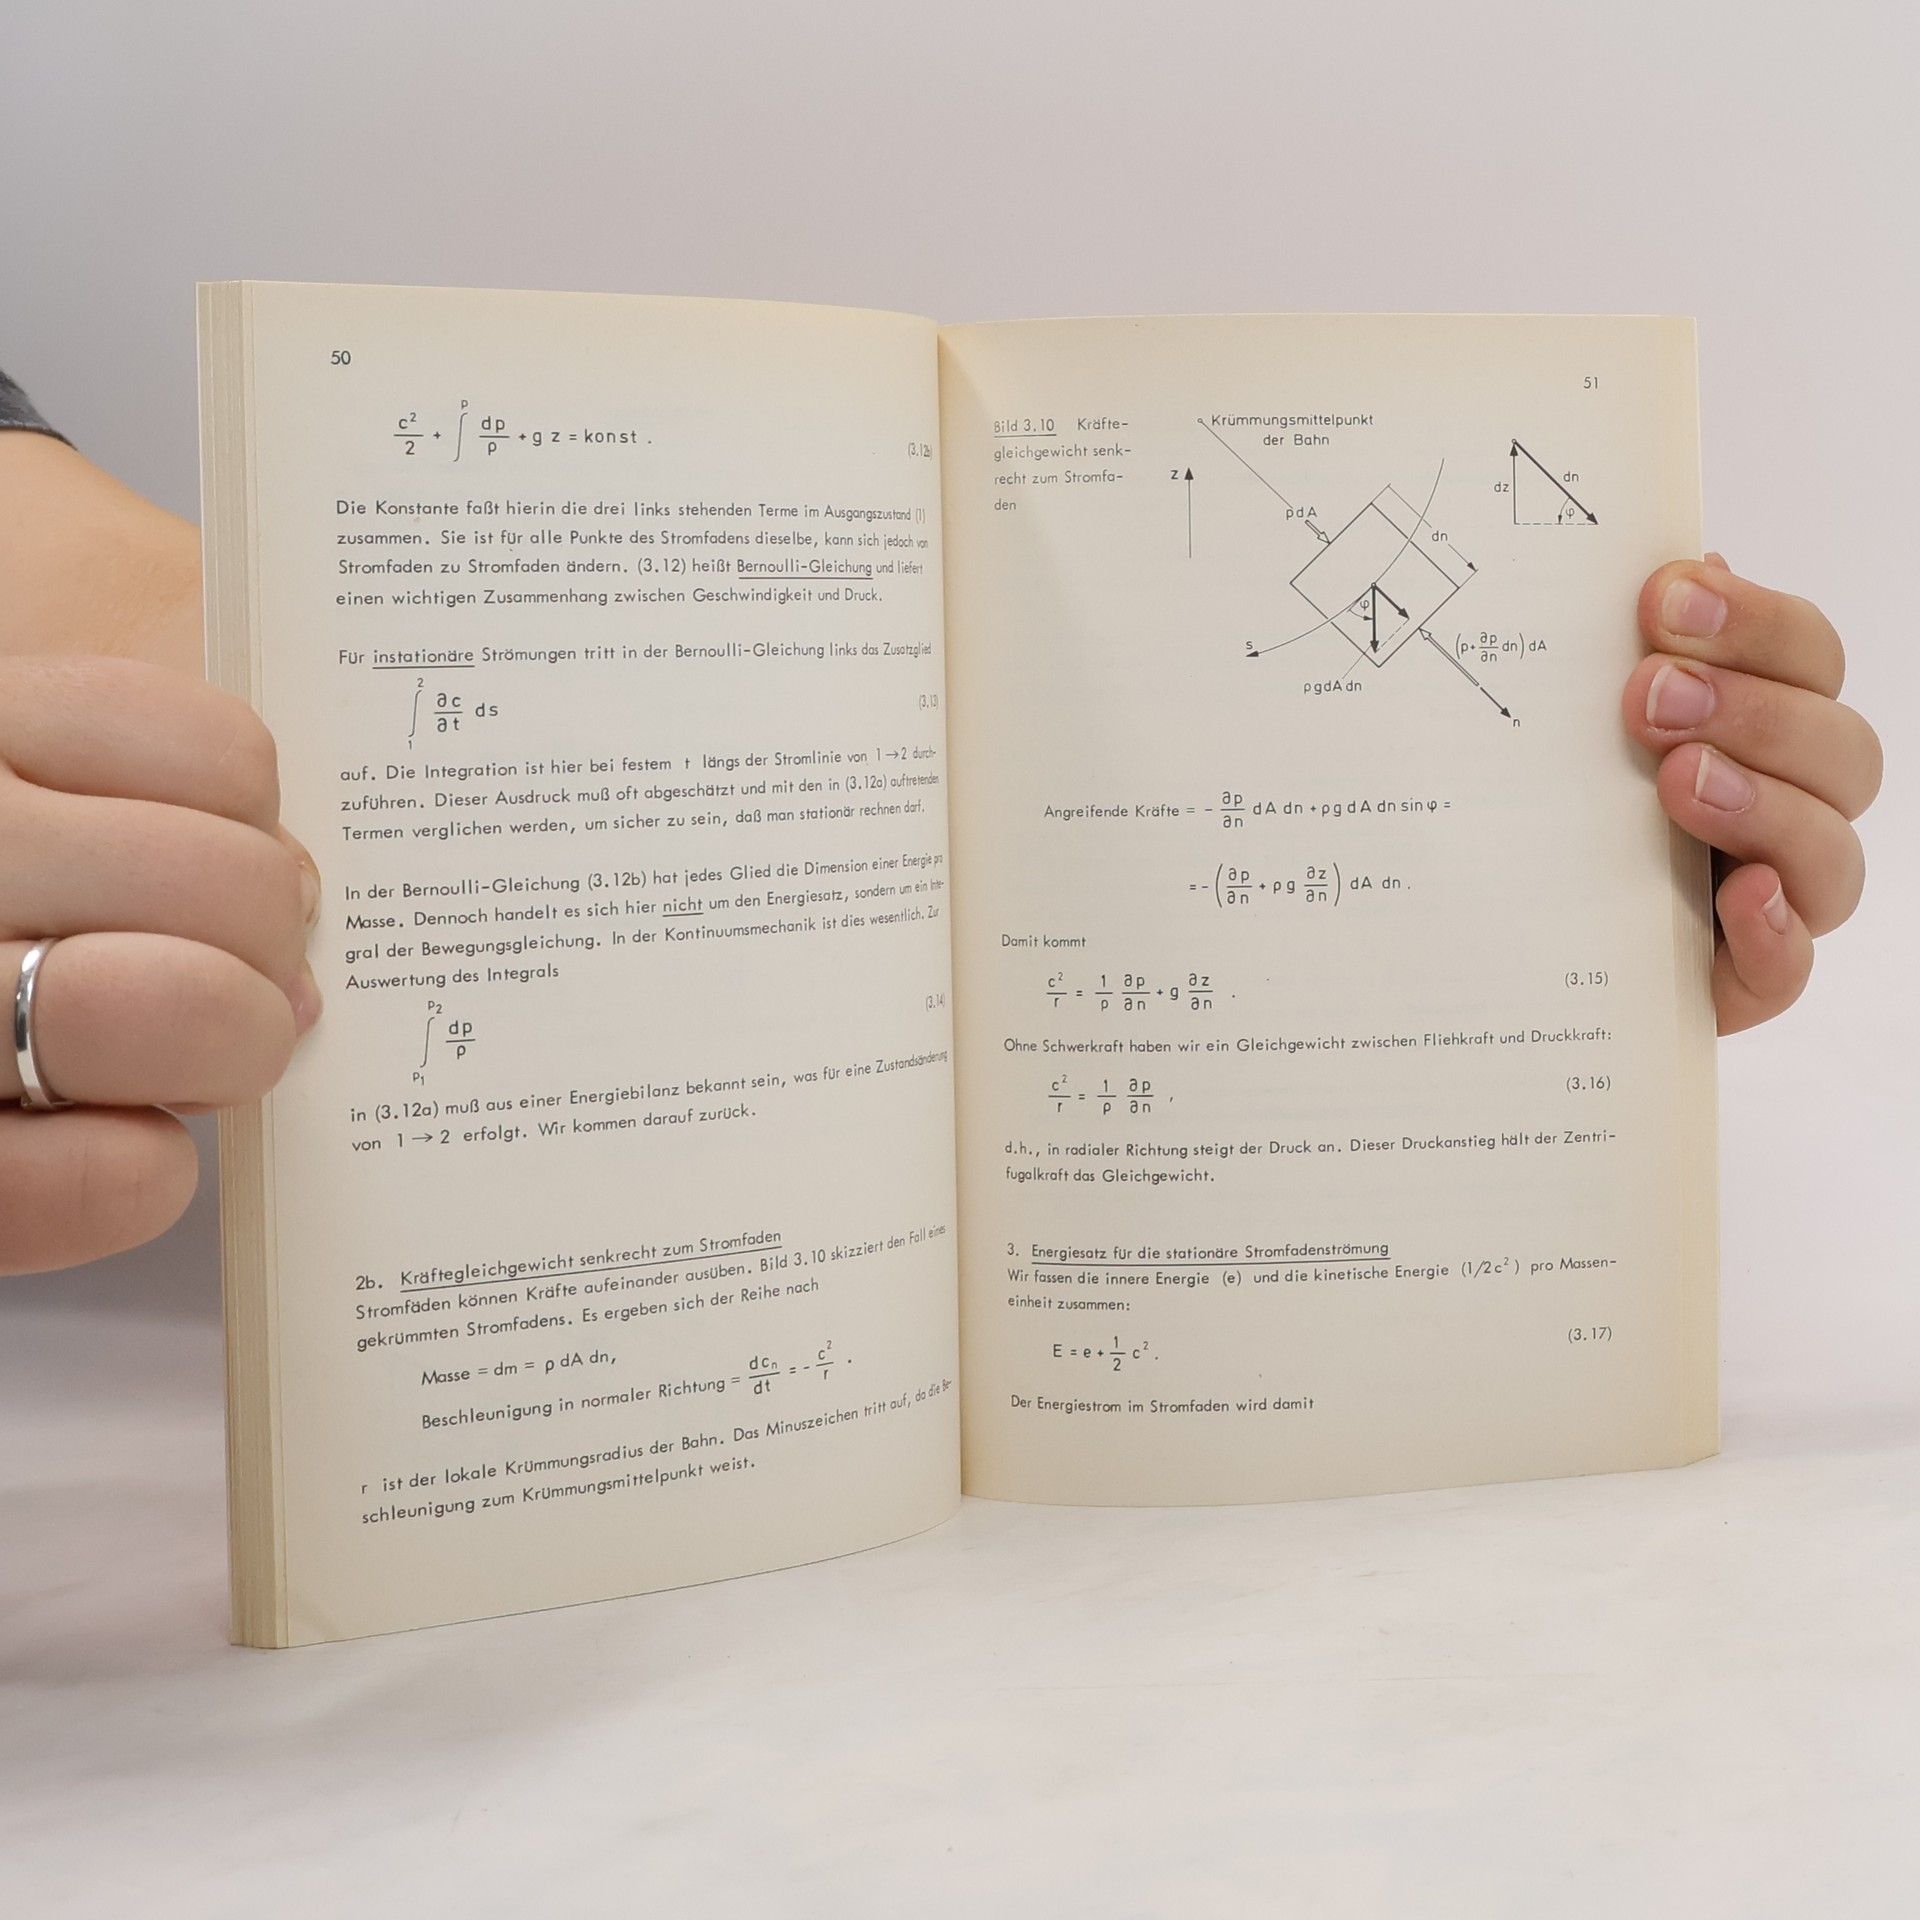 50
c²/2 + ∫^p dp/ρ + g z = konst . (3.12b)
Die Konstante faßt hierin die drei links stehenden Terme im Ausgangszustand (1)
zusammen. Sie ist für alle Punkte des Stromfadens dieselbe, kann sich jedoch von
Stromfaden zu Stromfaden ändern. (3.12) heißt Bernoulli-Gleichung und liefert
einen wichtigen Zusammenhang zwischen Geschwindigkeit und Druck.
Für instationäre Strömungen tritt in der Bernoulli-Gleichung links das Zusatzglied
∫₁² ∂c/∂t ds (3.13)
auf. Die Integration ist hier bei festem t längs der Stromlinie von 1→2 durch-
zuführen. Dieser Ausdruck muß oft abgeschätzt und mit den in (3.12a) auftretenden
Termen verglichen werden, um sicher zu sein, daß man stationär rechnen darf.
In der Bernoulli-Gleichung (3.12b) hat jedes Glied die Dimension einer Energie pro
Masse. Dennoch handelt es sich hier nicht um den Energiesatz, sondern um ein Inte-
gral der Bewegungsgleichung. In der Kontinuumsmechanik ist dies wesentlich. Zur
Auswertung des Integrals
∫_p₁^p₂ dp/ρ (3.14)
in (3.12a) muß aus einer Energiebilanz bekannt sein, was für eine Zustandsänderung
von 1→2 erfolgt. Wir kommen darauf zurück.
2b. Kräftegleichgewicht senkrecht zum Stromfaden
Stromfäden können Kräfte aufeinander ausüben. Bild 3.10 skizziert den Fall eines
gekrümmten Stromfadens. Es ergeben sich der Reihe nach
Masse = dm = ρ dA dn,
Beschleunigung in normaler Richtung = dcₙ/dt = - c²/r .
r ist der lokale Krümmungsradius der Bahn. Das Minuszeichen tritt auf, da die Be-
schleunigung zum Krümmungsmittelpunkt weist.
51
Bild 3.10 Kräfte-
gleichgewicht senk-
recht zum Stromfa-
den
Krümmungsmittelpunkt
der Bahn
z
pdA
dn
φ
s
ρgdA dn
(p+ ∂p/∂n dn) dA
n
dz
dn
φ
Angreifende Kräfte = - ∂p/∂n dA dn + ρg dA dn sin φ =
= - (∂p/∂n + ρg ∂z/∂n) dA dn .
Damit kommt
c²/r = 1/ρ ∂p/∂n + g ∂z/∂n . (3.15)
Ohne Schwerkraft haben wir ein Gleichgewicht zwischen Fliehkraft und Druckkraft:
c²/r = 1/ρ ∂p/∂n , (3.16)
d.h., in radialer Richtung steigt der Druck an. Dieser Druckanstieg hält der Zentri-
fugalkraft das Gleichgewicht.
3. Energiesatz für die stationäre Stromfadenströmung
Wir fassen die innere Energie (e) und die kinetische Energie (1/2c²) pro Massen-
einheit zusammen:
E = e + 1/2 c² . (3.17)
Der Energiestrom im Stromfaden wird damit